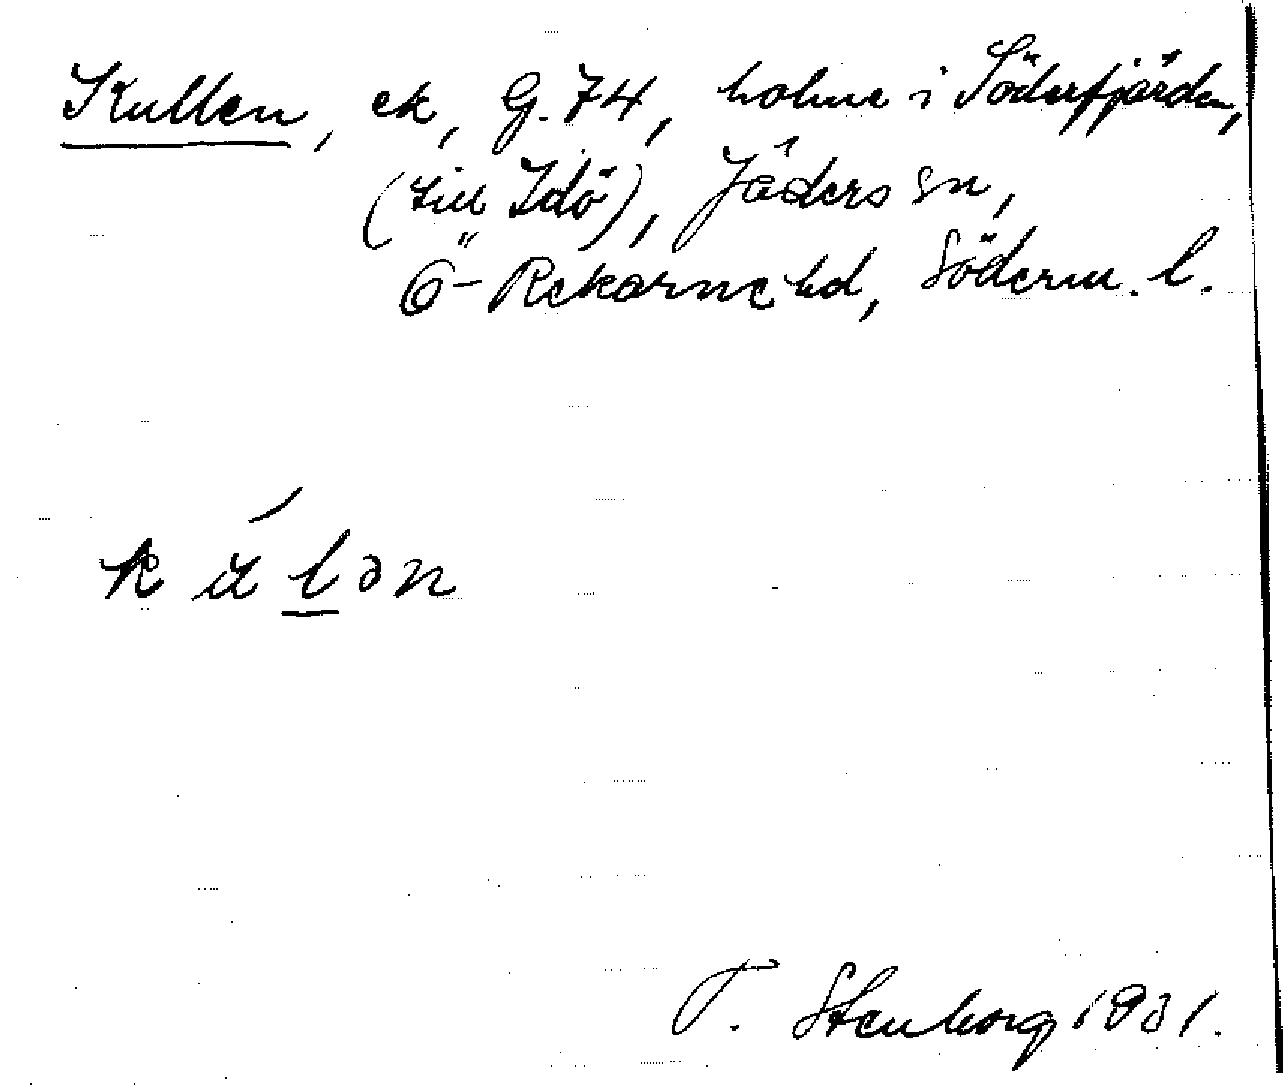 Kullen, ek, G. 74, holme i Söderfjärden,
(till Idö), Jäders sn,
Ö-Rekarne hd, Söderm. l.
ku̍l̲ən
T. Stenborg 1931.